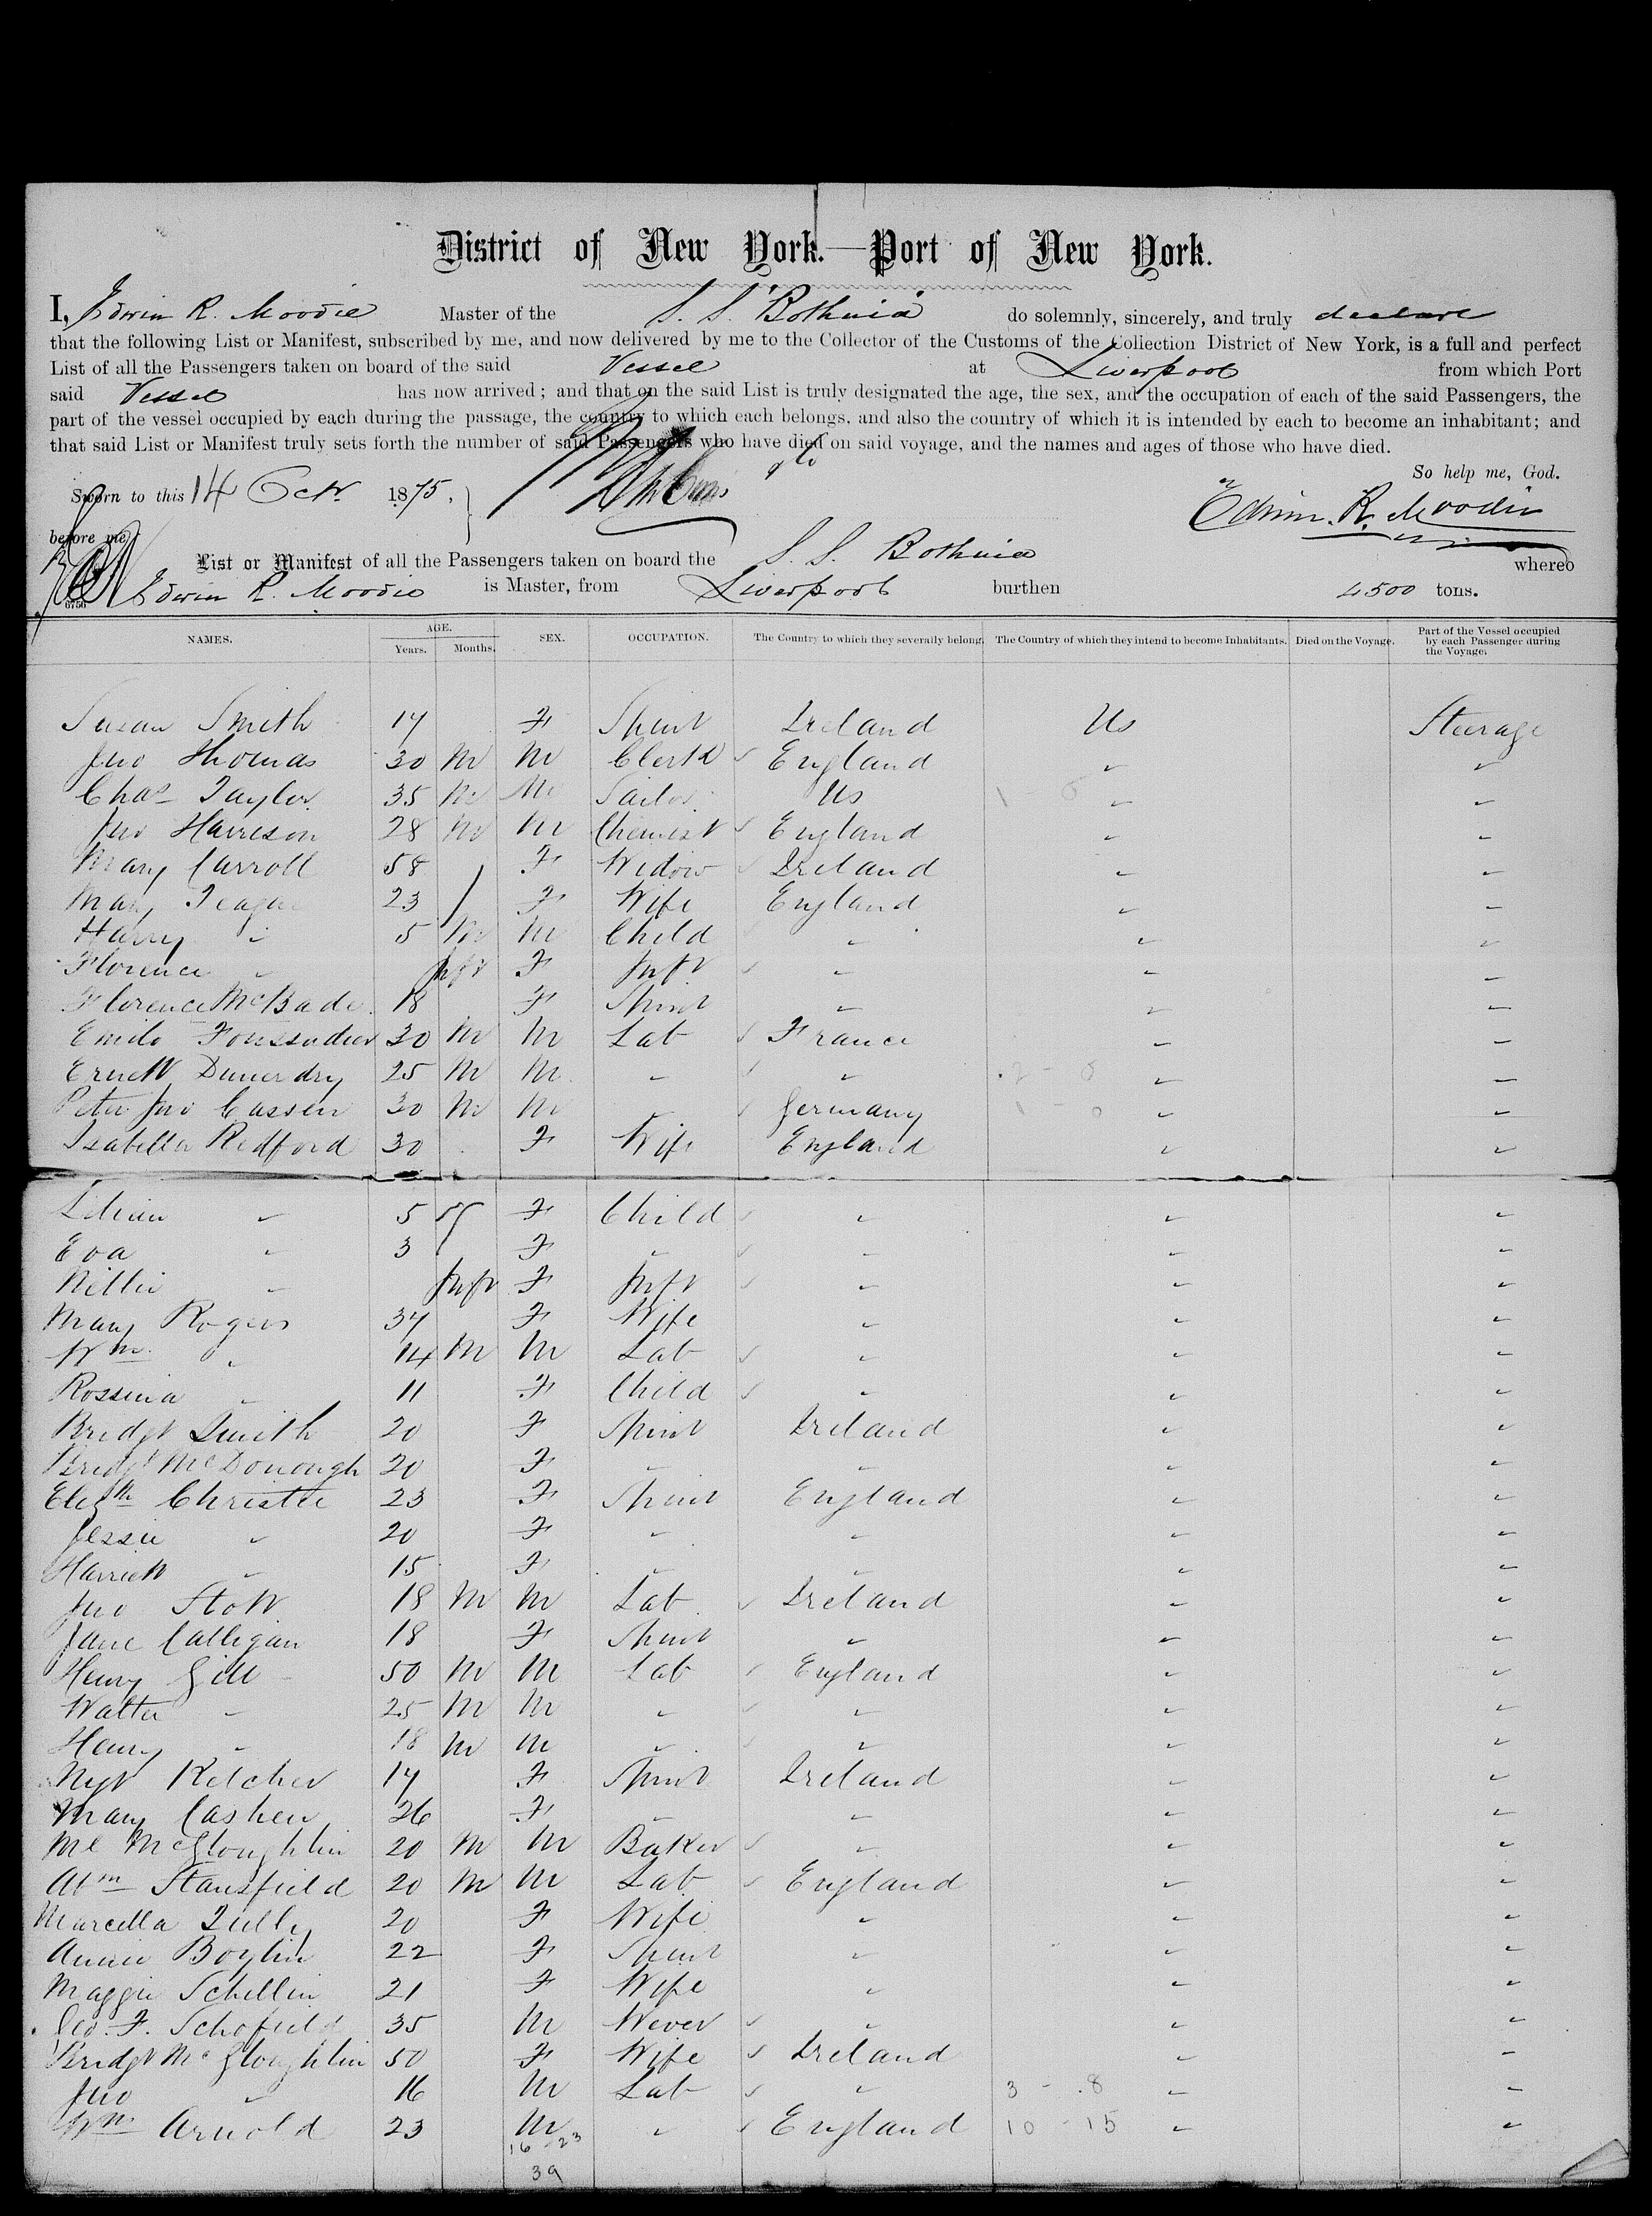 District of New York.—Port of New York.
I, Edwin R. Moodie Master of the S. S. "Bothnia" do solemnly, sincerely, and truly declare
that the following List or Manifest, subscribed by me, and now delivered by me to the Collector of the Customs of the Collection District of New York, is a full and perfect
List of all the Passengers taken on board of the said Vessel at Liverpool from which Port
said Vessel has now arrived; and that on the said List is truly designated the age, the sex, and the occupation of each of the said Passengers, the
part of the vessel occupied by each during the passage, the country to which each belongs, and also the country of which it is intended by each to become an inhabitant; and
that said List or Manifest truly sets forth the number of said Passengers who have died on said voyage, and the names and ages of those who have died.
So help me, God.
Sworn to this 14 Oct 1875. Edwin. R. Moodie
before me
List or Manifest of all the Passengers taken on board the S. S. Bothnia whereof
6756 Edwin R. Moodie is Master, from Liverpool burthen 4500 tons.
NAMES. AGE. Years. Months. SEX. OCCUPATION. The Country to which they severally belong. The Country of which they intend to become Inhabitants. Died on the Voyage. Part of the Vessel occupied by each Passenger during the Voyage.
Susan Smith 17 F Spinr Ireland Us Steerage
Jno Thomas 30 M M Clerk England " "
Chas Taylor 35 M M Sailor Us " "
Jno Harrison 28 M M Chemist England " "
Mary Carroll 58 F Widow Ireland " "
Mary Teague 23 F Wife England " "
Harry " 5 M M Child " " "
Florence " Inft F Inft " " "
Florence McBade 18 F Spinr " " "
Emile 30 M M Lab France " "
Ernest 25 M M " " " "
Peter Jno Cassen 30 M M " Germany " "
Isabella Redford 30 F Wife England " "
Lilian " 5 F Child " " "
Eva " 3 F " " " "
Nellie " Inft F Inft " " "
Mary Rogers 37 F Wife " " "
Wm " 14 M M Lab " " "
Rossina " 11 F Child " " "
Bridgt Smith 20 F Spinr Ireland " "
Bridgt McDonough 20 F " " " "
Elizth Christie 23 F Spinr England " "
Jessie " 20 F " " " "
Harriett " 15 F " " " "
Jno Stott 18 M M Lab Ireland " "
Jane Calligan 18 F Spinr " " "
Henry Gill 50 M M Lab England " "
Walter " 25 M M " " " "
Henry " 18 M M " " " "
Mgt Kelcher 17 F Spinr Ireland " "
Mary Cashen 26 F " " " "
Ml McGloughlin 20 M M Baker " " "
Abm Stansfield 20 M M Lab England " "
Marcella Tully 20 F Wife " " "
Annie Boylin 22 F Spinr " " "
Maggie Schellin 21 F Wife " " "
Geo. F. Schofield 35 M Wever " " "
Bridgt McGloughlin 50 F Wife Ireland " "
Jno " 16 M Lab " 3 - 8 " "
Wm Arnold 23 M " England 10 - 15 " "
16 23
39